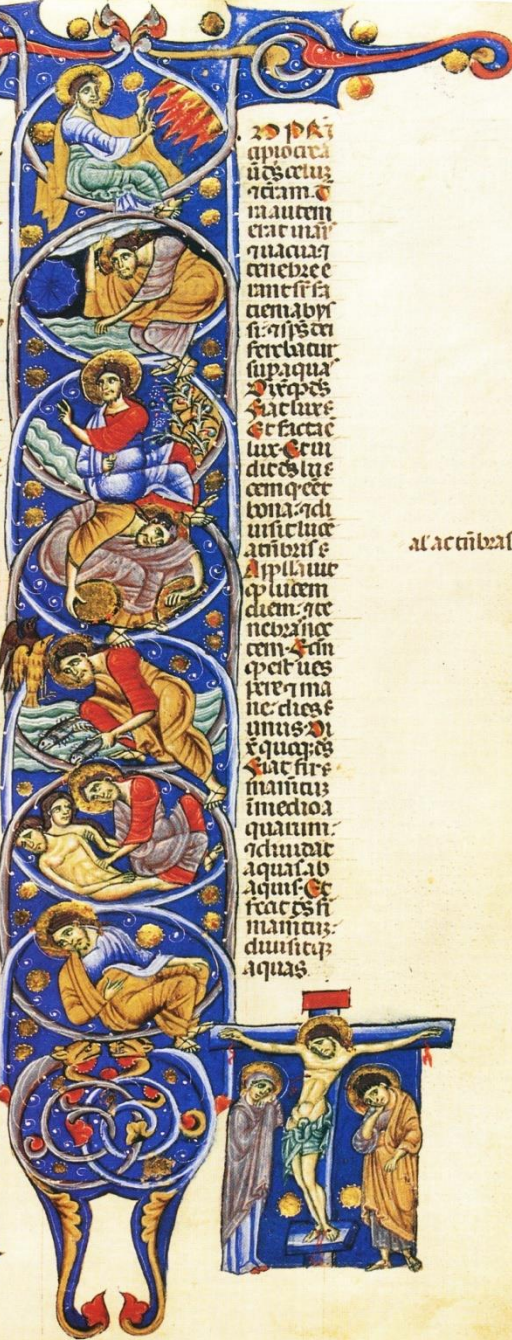 N PRĪ
cipio crea
ū ds celuꝫ
⁊ t̄ram. T̄
ra autem
erat inaī
⁊ uacua ⁊
tenebre e
rant sr̄ fa
ciem abys
si: ⁊ sp̄s dei
ferebatur
sup aqua
Dixꝗ ds
Fiat lux ⁊
Et facta ē
lux. Et ui
dit ds luc
cem ꝙ eēt
bona: ⁊ di
uisit lucē
a tn̄bris ⁊
Appllauit
ꝙ lucem
diem: ⁊ te
nebras noc
tem.
ꝙ est ues
pere ⁊ ma
ne: dies ⁊
unus. Di
x̄ quoꝗ: ds
Fiat firr
mamtuꝫ
ī medio a
quarum:
⁊ diuidat
aquas ab
aquis. Et
fecit ds fi
mamtuꝫ:
diuisitꝗ
aquas
al' ac tn̄bras